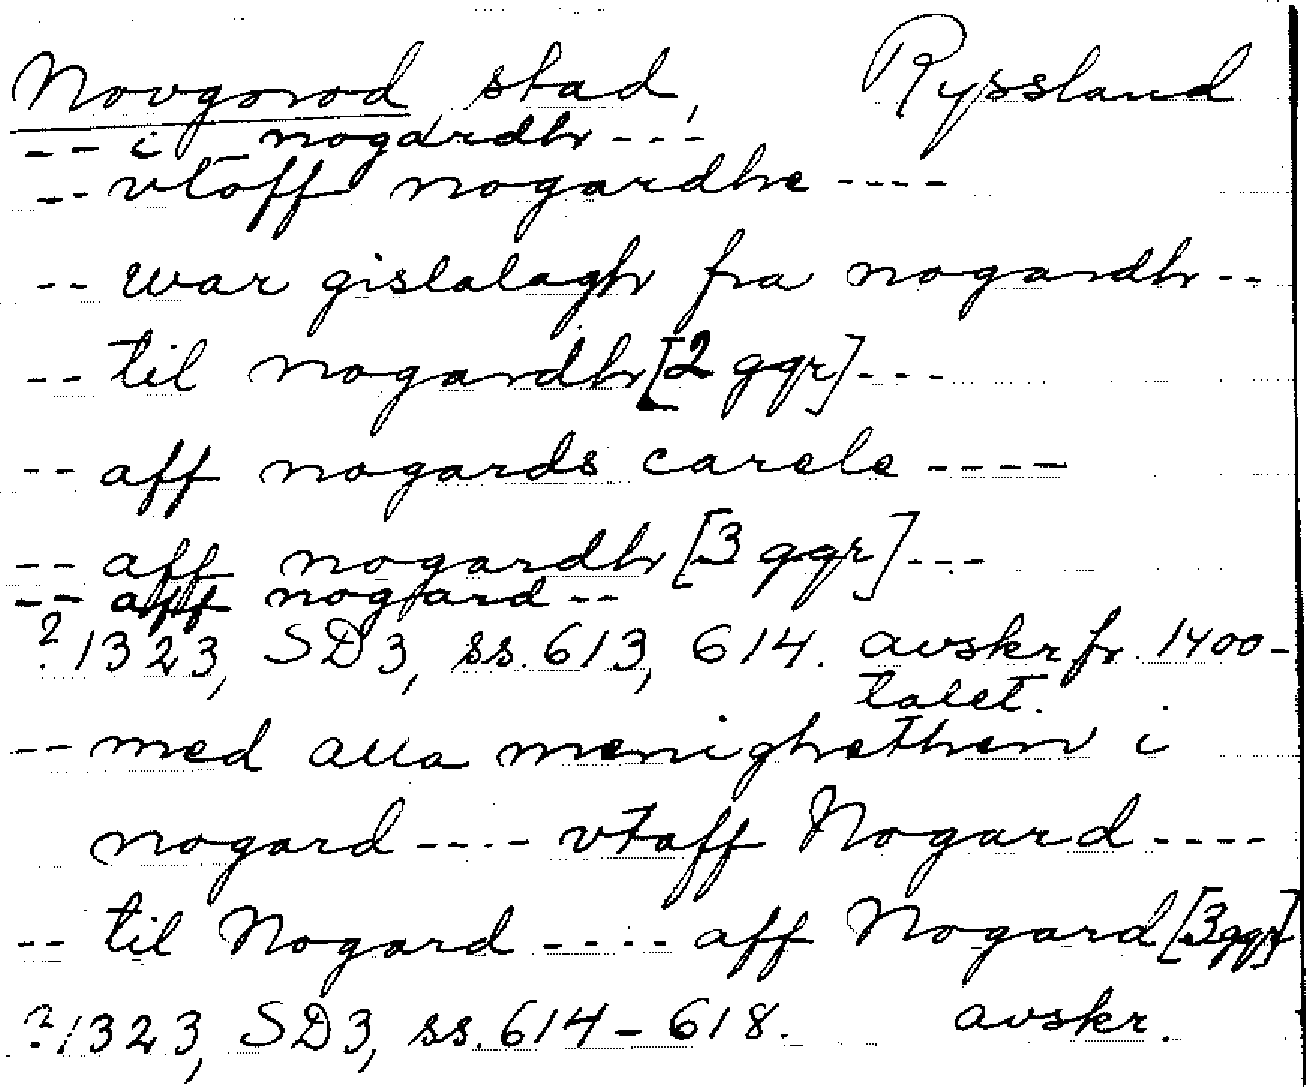 Novgorod stad, Ryssland
-- i nogardhr ---
-- vtoff nogardhe ----
-- war gislalaghr fra nogardhr --
-- til nogardhr [2 ggr] ---
-- aff nogards carele ----
-- aff nogardhr [3 ggr] ---
-- aff nogard --
? 1323, SD3, ss. 613, 614. avskr fr. 1400-
talet.
-- med alla menighethen i
nogard ---- vtaff Nogard ----
-- til Nogard ---- aff Nogard [3 ggr]
? 1323, SD3, ss. 614-618. avskr.